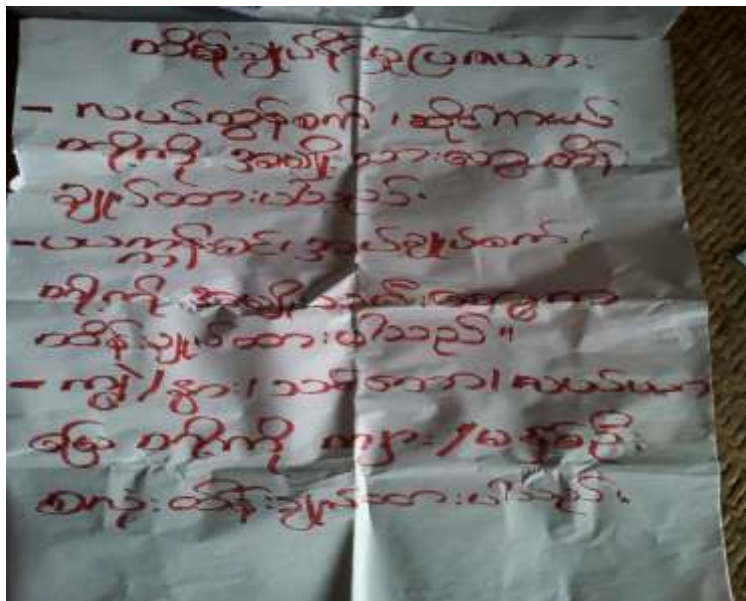 ထိန်းချုပ်နိုင်မှုပြဿနာ
- လယ်ထွန်စက်၊ ဆိုင်ကယ်
တို့ကို အမျိုးသားတွေ ထိန်း
ချုပ်ထားပါသည်။
- ပယက္ကန်းစင်၊ အပ်ချုပ်စက်၊
တို့ကို အမျိုးသမီးတွေက
ထိန်းချုပ်ထားပါသည်။
- ကျွဲ/နွား/သစ်တော/လယ်ယာ
မြေ တို့ကို ကျား/မ နှစ်ဦး
စလုံး ထိန်းချုပ်ထားပါသည်။